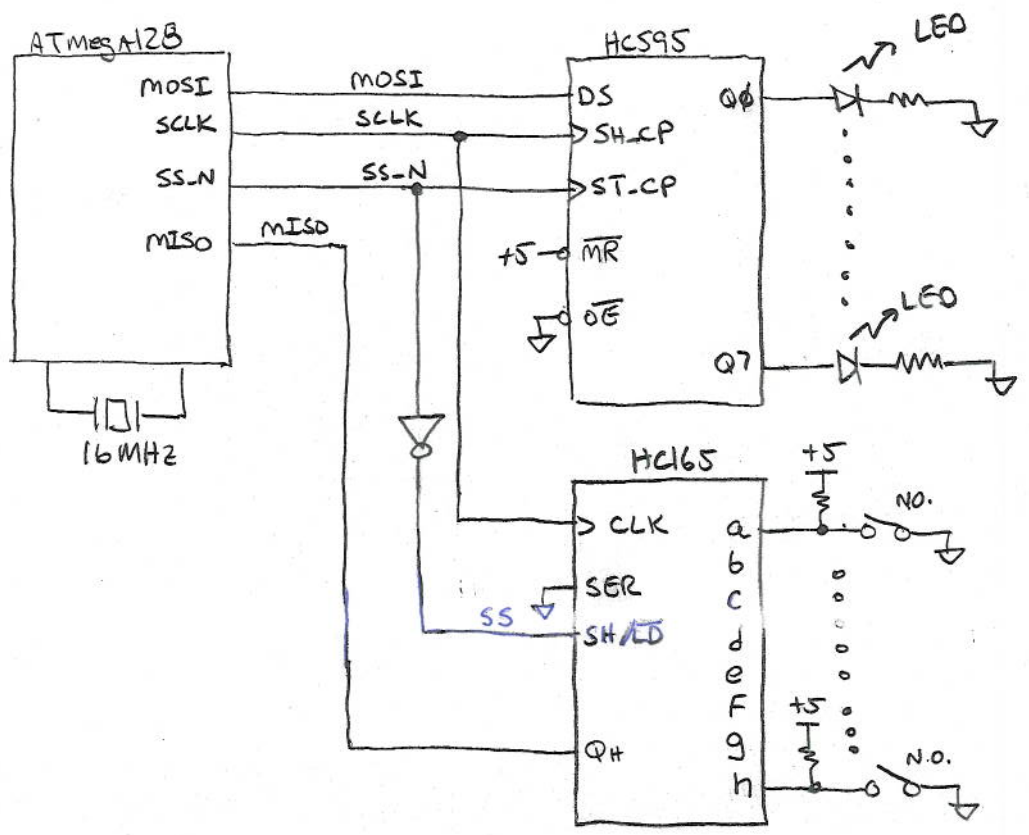 ATmegA128
MOSI
SCLK
SS_N
MISO
16MHz
MOSI
SCLK
SS_N
MISO
HC595
DS
SH_CP
ST_CP
+5
M̅R̅
O̅E̅
Q0
Q7
LED
LED
HC165
CLK
SER
SS
SH/L̅D̅
QH
a
b
c
d
e
F
g
h
+5
N.O.
+5
N.O.